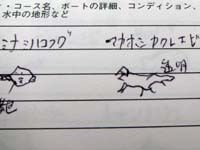 ・コース名、ボートの詳細、コンディション、
水中の地形など
ミナミハコフグ　マガオニカクレエビ
透明